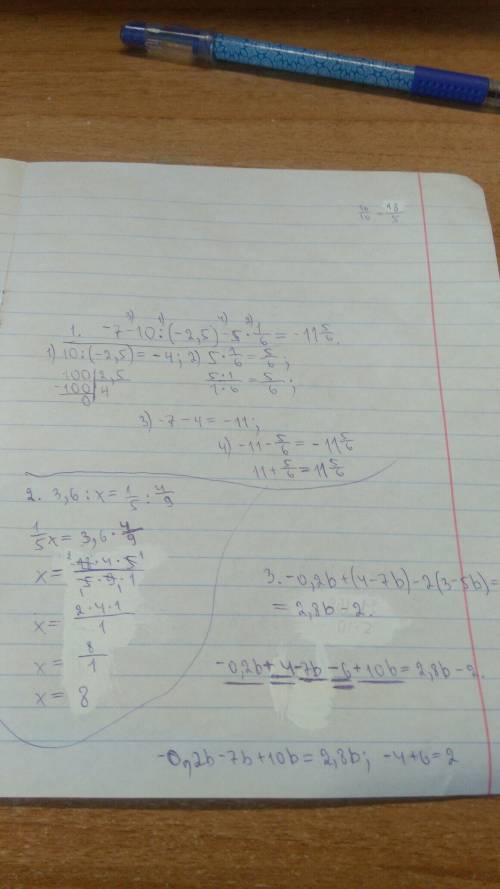 36/10 = 18/5
3) 1) 4) 2)
1. -7-10:(-2,5)-5·1/6=-11 5/6.
1) 10:(-2,5)=-4; 2) 5·1/6=5/6;
100|2,5 5·1/1·6=5/6;
-100|4
0
3) -7-4=-11;
4) -11-5/6=-11 5/6
11+5/6=11 5/6
2. 3,6:x=1/5:4/9
1/5x=3,6·4/9
x=18·4·5/5·9·1
x=2·4·1/1
x=8/1
x=8
3. -0,2b+(4-7b)-2(3-5b)=
=2,8b-2.
-0,2b+4-7b-6+10b=2,8b-2.
-0,2b-7b+10b=2,8b; -4+6=2